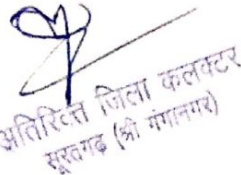 अतिरिक्त जिला कलक्टर
सूरतगढ़ (श्री गंगानगर)